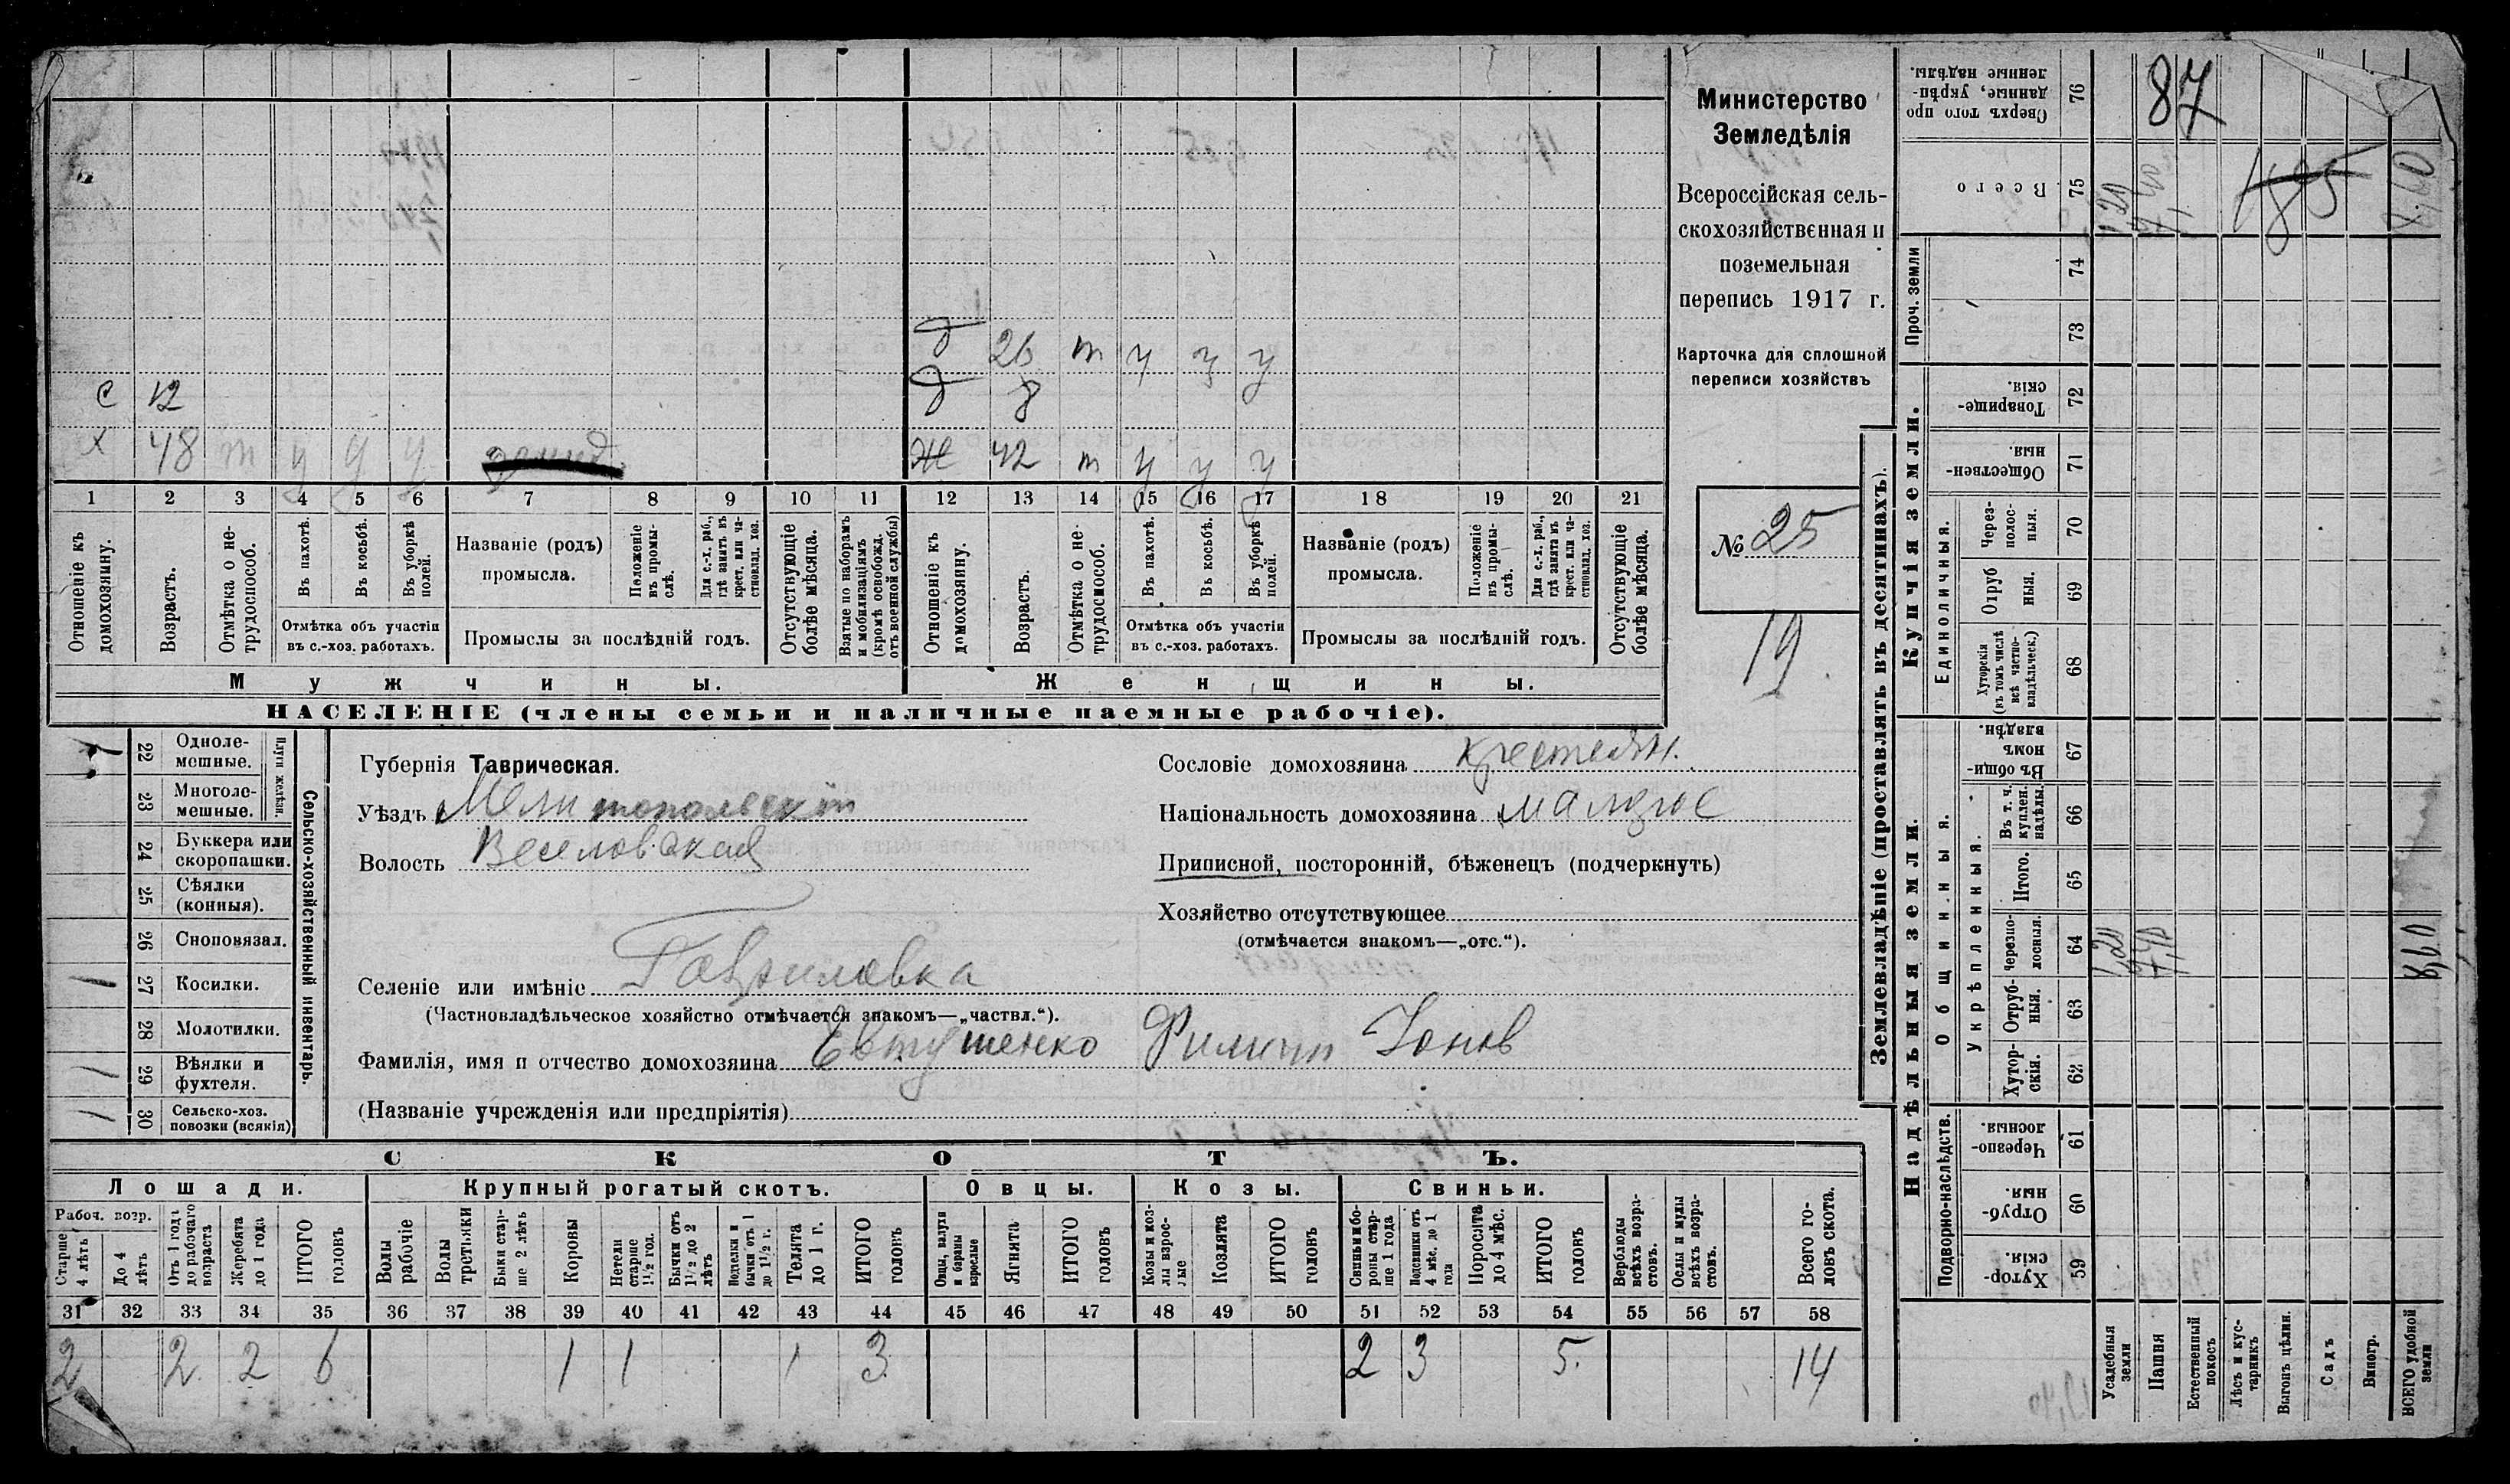 Министерство
Земледѣлія
Всероссійская сель-
скохозяйственная и
поземельная
перепись 1917 г.
Карточка для сплошной
переписи хозяйствъ
№ 25
19
д 26 т у у у
с 12 д 8
х 48 т у у у Ж 42 т у у у
1 2 3 4 5 6 7 8 9 10 11 12 13 14 15 16 17 18 19 20 21
Отношеніе къ домохозяину.
Возрастъ.
Отмѣтка о не-трудоспособ.
Въ пахотѣ.
Въ косьбѣ.
Въ уборкѣ полей.
Отмѣтка объ участіи
въ с.-хоз. работахъ.
Названіе (родъ)
промысла.
Положеніе въ промы-слѣ.
Для с.-х. раб., гдѣ занятъ въ крест. или ча-стновлад. хоз.
Промыслы за послѣдній годъ.
Отсутствующіе болѣе мѣсяца.
Взятые по наборамъ и мобилизаціямъ (кромѣ освобожд. отъ военной службы)
Отношеніе къ домохозяину.
Возрастъ.
Отмѣтка о не-трудоспособ.
Въ пахотѣ.
Въ косьбѣ.
Въ уборкѣ полей.
Отмѣтка объ участіи
въ с.-хоз. работахъ.
Названіе (родъ)
промысла.
Положеніе въ промы-слѣ.
Для с.-х. раб., гдѣ занята въ крест. или ча-стновлад. хоз.
Промыслы за послѣдній годъ.
Отсутствующіе болѣе мѣсяца.
Мужчины. Женщины.
НАСЕЛЕНІЕ (члены семьи и наличные наемные рабочіе).
Сельско-хозяйственный инвентарь.
Плуги желѣзн.
22 Одноле-мешные.
23 Многоле-мешные.
24 Буккера или скоропашки.
25 Сѣялки (конныя).
26 Сноповязал.
27 Косилки. 1
28 Молотилки.
29 Вѣялки и фухтеля. 1
30 Сельско-хоз. повозки (всякія) 1
Губернія Таврическая.
Уѣздъ Мелитопольскій
Волость Веселовская
Сословіе домохозяина крестьян.
Національность домохозяина малорос
Приписной, посторонній, бѣженецъ (подчеркнуть)
Хозяйство отсутствующее
(отмѣчается знакомъ—„отс.“).
Селеніе или имѣніе Гавриловка
(Частновладѣльческое хозяйство отмѣчается знакомъ—„частвл.“).
Фамилія, имя и отчество домохозяина Евтушенко Филипп Ионов
(Названіе учрежденія или предпріятія)
СКОТЪ.
Лошади. Крупный рогатый скотъ. Овцы. Козы. Свиньи.
Рабоч. возр.
Старше 4 лѣтъ
До 4 лѣтъ
Отъ 1 года до рабочаго возраста
Жеребята до 1 года
ИТОГО головъ
Волы рабочіе
Волы третьяки
Быки стар-ше 2 лѣтъ
Коровы
Нетели старше 1½ год.
Бычки отъ 1½ до 2 лѣтъ
Подтелки и бычки отъ 1 до 1½ г.
Телята до 1 г.
ИТОГО головъ
Овцы, валухи и бараны взрослые
Ягнята
ИТОГО головъ
Козы и коз-лы взрос-лые
Козлята
ИТОГО головъ
Свиньи и бо-ровы стар-ше 1 года
Подсвинки отъ 4 мѣс. до 1 года
Поросята до 4 мѣс.
ИТОГО головъ
Верблюды всѣхъ возра-стовъ.
Ослы и мулы всѣхъ возра-стовъ.
Всего го-ловъ скота.
31 32 33 34 35 36 37 38 39 40 41 42 43 44 45 46 47 48 49 50 51 52 53 54 55 56 57 58
2 2 2 6 1 1 1 3 2 3 5 14
Землевладѣніе (проставлять въ десятинахъ).
Купчія земли.
Надѣльныя земли.
87
76 Сверхъ того про-данные, укрѣп-ленные надѣлы.
75 Всего 1,20 7,40 185 8,60
Проч. земли
74
73
72 Товарище-скія.
71 Обществен-ныя.
Единоличныя.
70 Через-полос-ныя.
69 Отруб-ныя.
68 Хуторскія (въ томъ числѣ всѣ частно-владѣльческ.)
Общинныя.
67 Въ общин-номъ владѣн.
Укрѣпленныя.
66 Въ т. ч. куплен. надѣлы.
65 Итого.
64 Черезпо-лосныя. 1,20 7,40 8,60
63 Отруб-ныя.
62 Хутор-скія.
Подворно-наслѣдств.
61 Черезпо-лосныя.
60 Отруб-ныя.
59 Хутор-скія.
Усадебныя земли
Пашня
Естественный покосъ
Лѣсъ и кус-тарникъ
Выгонъ цѣлин.
Садъ
Виногр.
ВСЕГО удобной земли